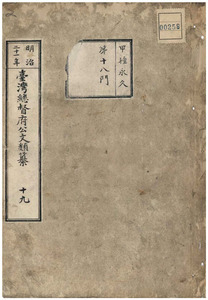 00258
甲種永久
第十八門
明治
三十一年
臺灣總督府公文類纂
十九